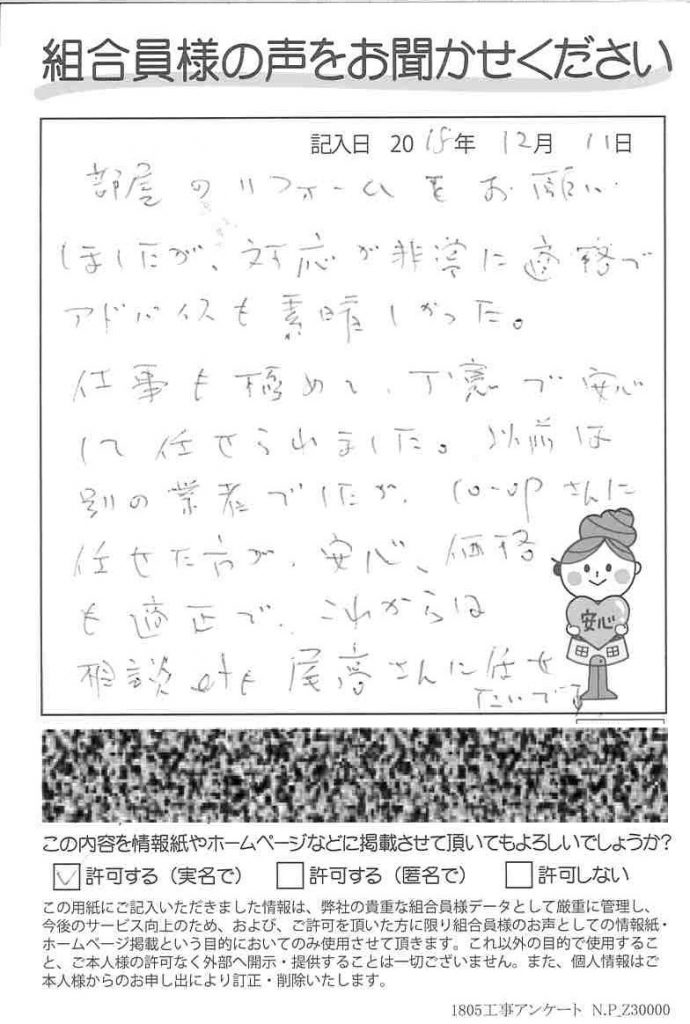 組合員様の声をお聞かせください
記入日 2018年 12月 11日
部屋のリフォームをお願い
しましたが、対応が非常に適格で
アドバイスも素晴しかった。
仕事も極めて、丁寧で安心
して任せられました。以前は
別の業者でしたが、CO-OPさんに
任せた方が、安心、価格
も適正で、これからは
相談etも尾高さんに任せ
たいです
安心
この内容を情報紙やホームページなどに掲載させて頂いてもよろしいでしょうか?
許可する（実名で） 許可する（匿名で） 許可しない
この用紙にご記入いただきました情報は、弊社の貴重な組合員様データとして厳重に管理し、
今後のサービス向上のため、および、ご許可を頂いた方に限り組合員様のお声としての情報紙・
ホームページ掲載という目的においてのみ使用させて頂きます。これ以外の目的で使用するこ
と、ご本人様の許可なく外部へ開示・提供することは一切ございません。また、個人情報はご
本人様からのお申し出により訂正・削除いたします。
1805工事アンケート N.P_Z30000